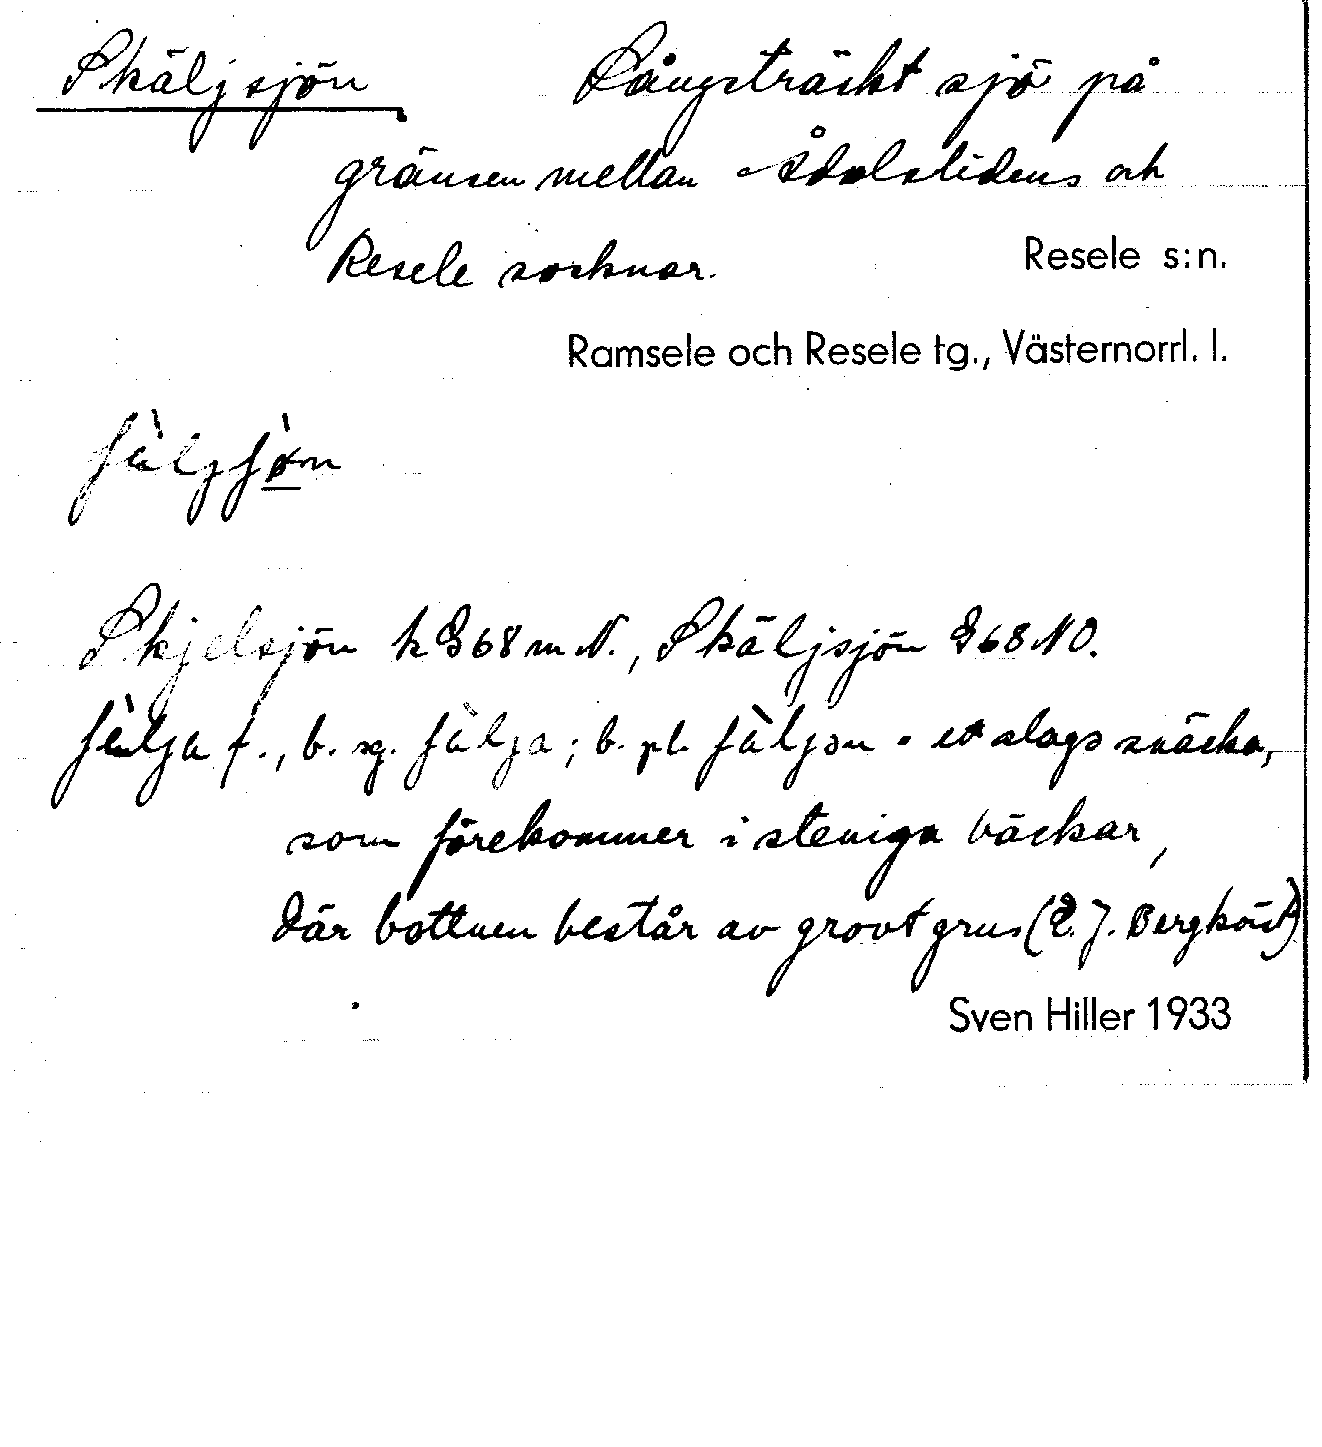 Skäljsjön Långsträckt sjö på
gränsen mellan Ådalslidens och
Resele socknar. Resele s:n.
Ramsele och Resele tg., Västernorrl. l.
ʃàljʃö̀n
Skjelsjön k G68 m N., Skäljsjön G68 NO.
ʃàlja f., b. sg. ʃàlja; b. pl. ʃàljǝn - ett slags snäcka,
som förekommer i steniga bäckar,
där bottnen består av grovt grus (E. J. Bergkvist)
Sven Hiller 1933